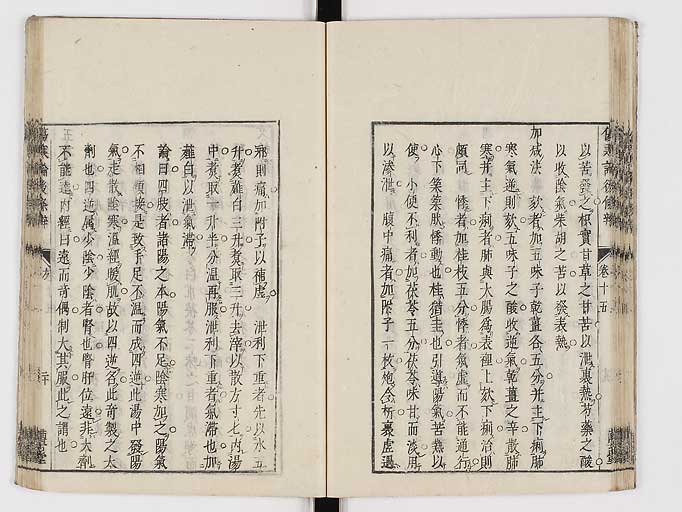 以苦發之枳實甘草之甘苦以泄裏熱芍藥之酸
以收陰氣柴胡之苦以發表熱
加減法 欬者加五味子乾薑各五分并主下痢肺
寒氣逆則欬五味子之酸收逆氣乾薑之辛散肺
寒并主下痢者肺與大腸爲表裡上欬下痢治則
頗同 悸者加桂枝五分悸者氣虛而不能通行
心下築築然悸動也桂猶圭也引導陽氣若熱以
使 小便不利者加茯苓五分茯苓味甘而淡用
以滲泄 腹中痛者加附子一枚炮令拆裏虛遇
邪則痛加附子以補虛 泄利下重者先以水五
升煮薤白三升煮取三升去滓以散方寸匕内湯
中煮取一升半分温再服泄利下重者氣滯也加
薤白以泄氣滯
論曰四肢者諸陽之本陽氣不足陰寒加之陽氣
不相順接是致手足不温而成四逆此湯中發陽
氣走散陰寒温經暖肌故以四逆名此奇製之大
劑也四逆屬少陰少陰者腎也腎肝位遠非大劑
不能達内經曰遠而奇偶制大其服此之謂也
卷十五